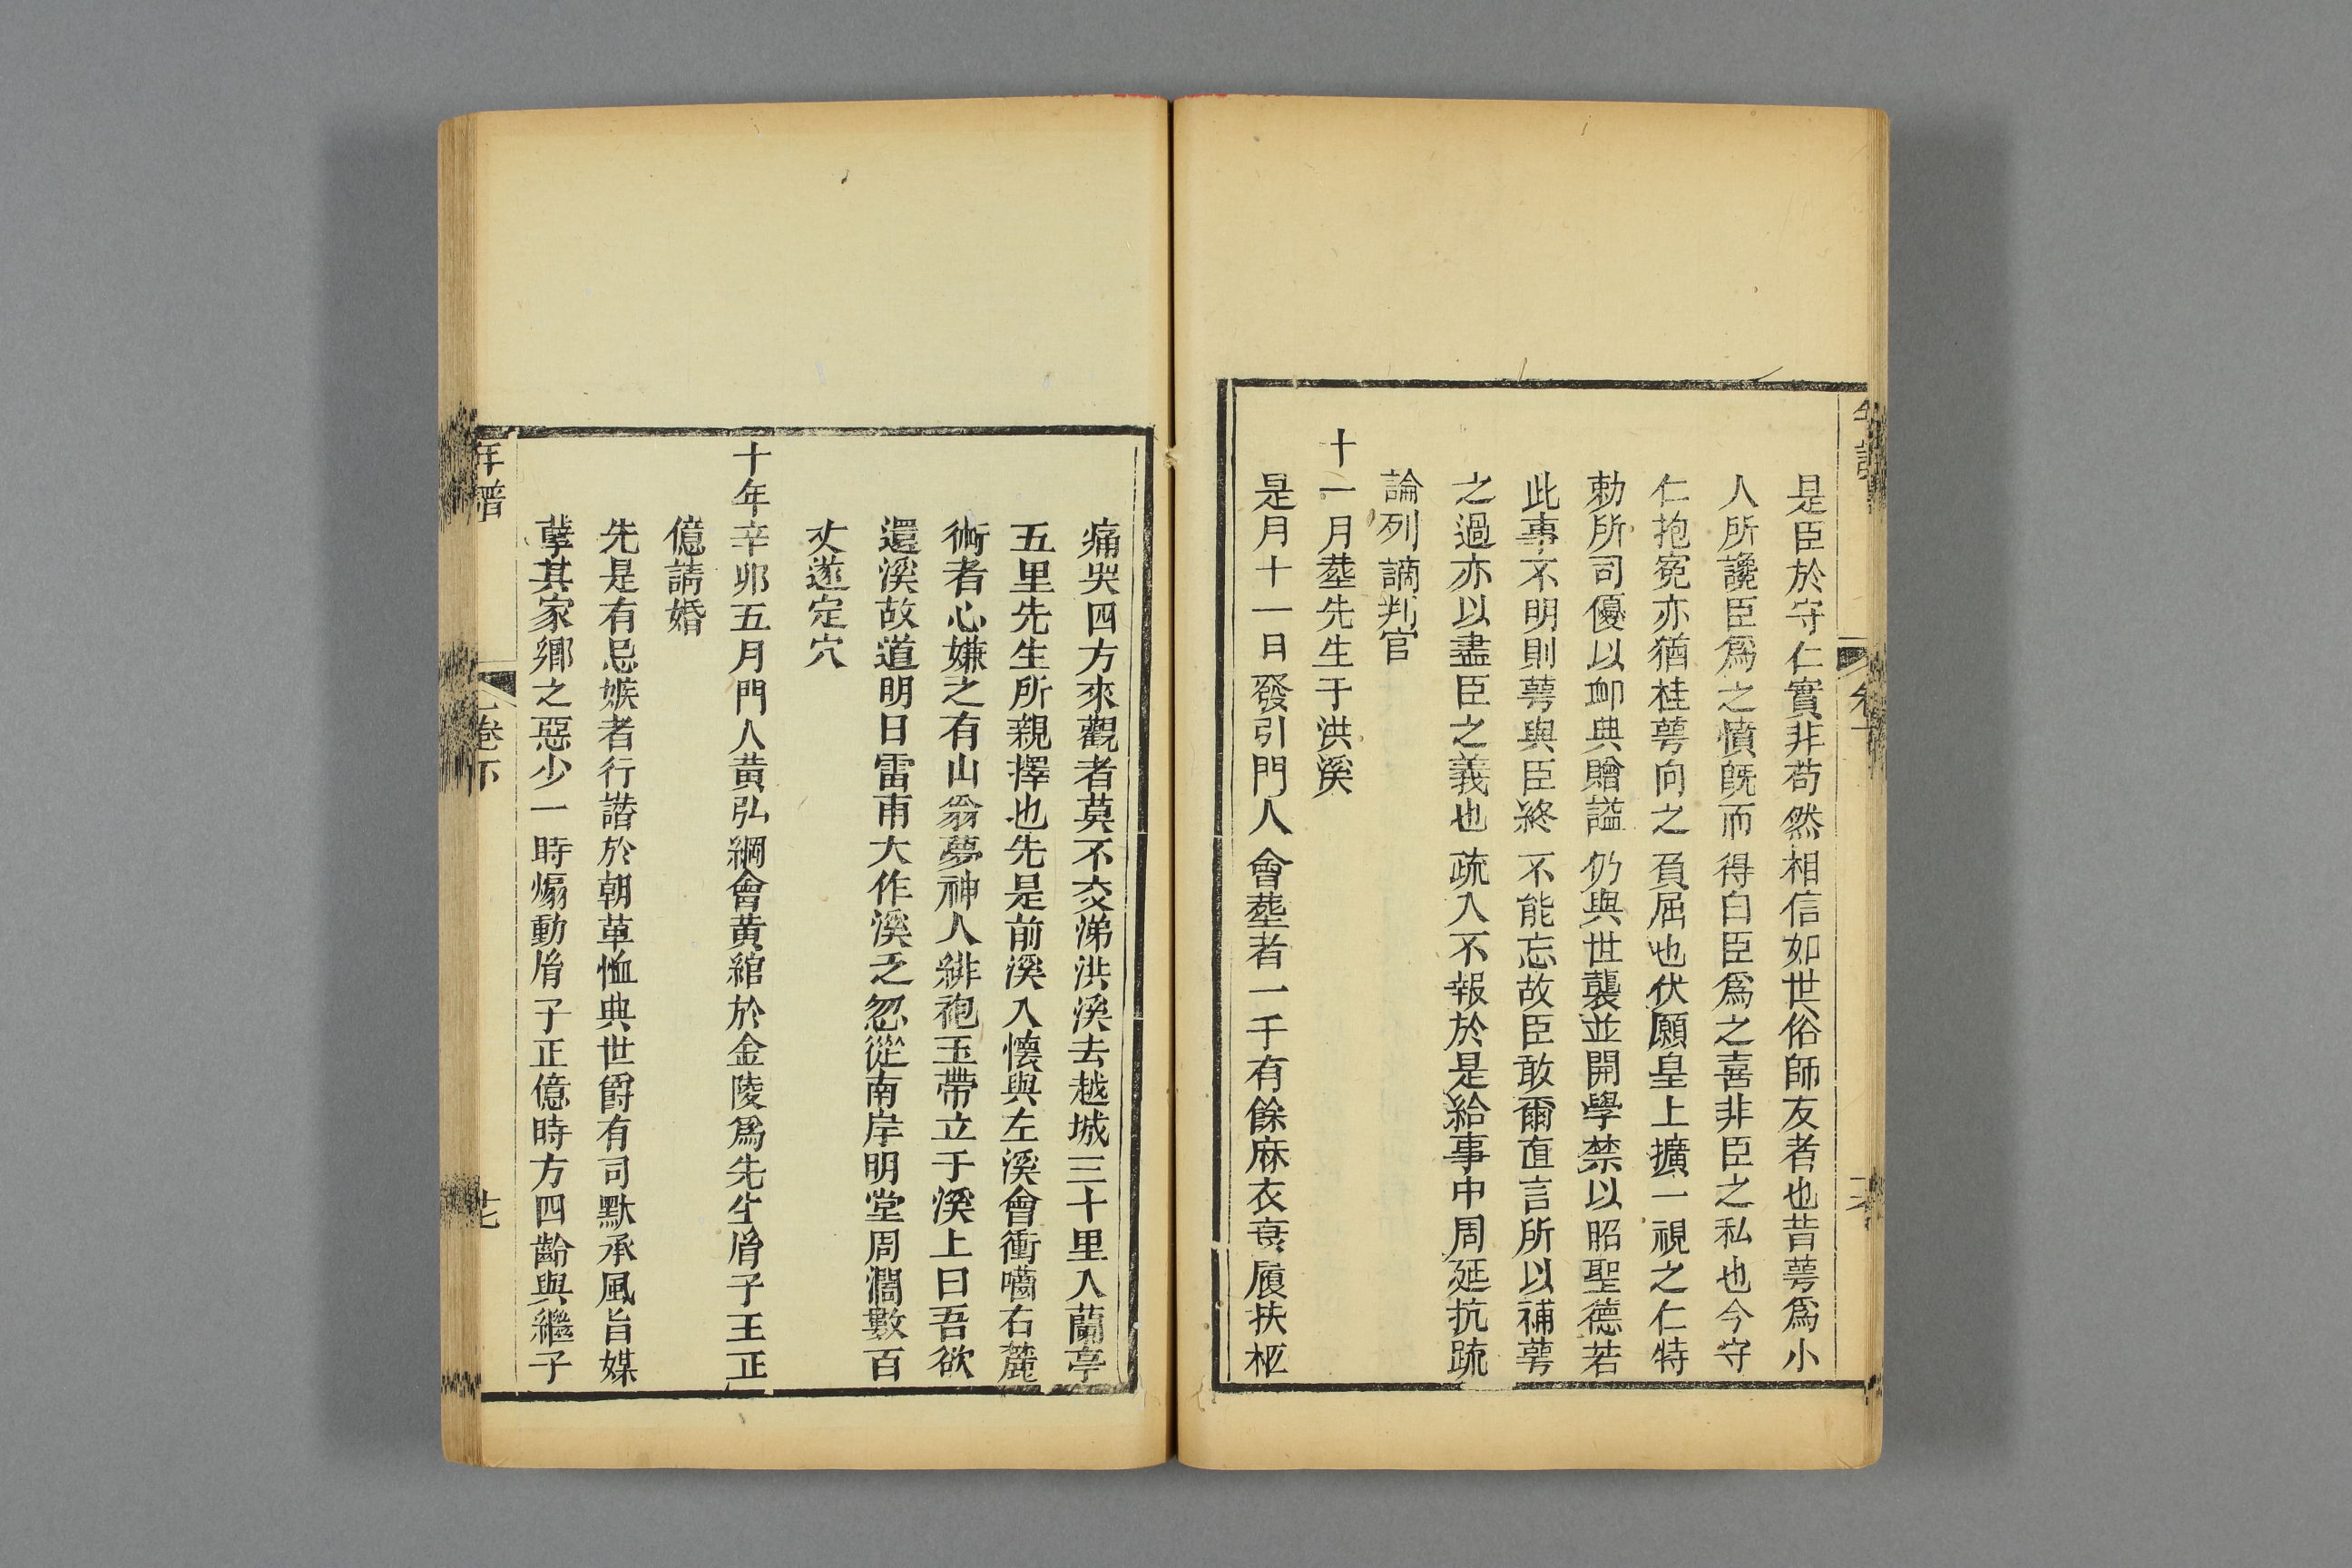 是臣於守仁實非苟然相信如世俗師友者也昔萼爲小
人所讒臣爲之憤旣而得白臣爲之喜非臣之私也今守
仁抱冤亦猶桂萼向之負屈也伏願皇上擴一視之仁特
勅所司優以卹典贈諡仍與世襲並開學禁以昭聖德若
此事不明則萼與臣終不能忘故臣敢爾直言所以補萼
之過亦以盡臣之義也疏入不報於是給事中周延抗疏
論列謫判官
十一月塟先生于洪溪
是月十一日發引門人會塟者一千有餘麻衣衰屨扶柩
痛哭四方來觀者莫不交涕洪溪去越城三十里入蘭亭
五里先生所親擇也先是前溪入懷與左溪會衝嚙右麓
術者心嫌之有山翁夢神人緋袍玉帶立于溪上曰吾欲
還溪故道明日雷雨大作溪乏忽從南岸明堂周濶數百
丈遂定穴
十年辛卯五月門人黃弘綱會黄綰於金陵爲先生胤子王正
億請婚
先是有忌嫉者行譖於朝革恤典世爵有司默承風旨媒
孽其家鄉之惡少一時煽動胤子正億時方四齡與繼子
年譜 卷下 廿七